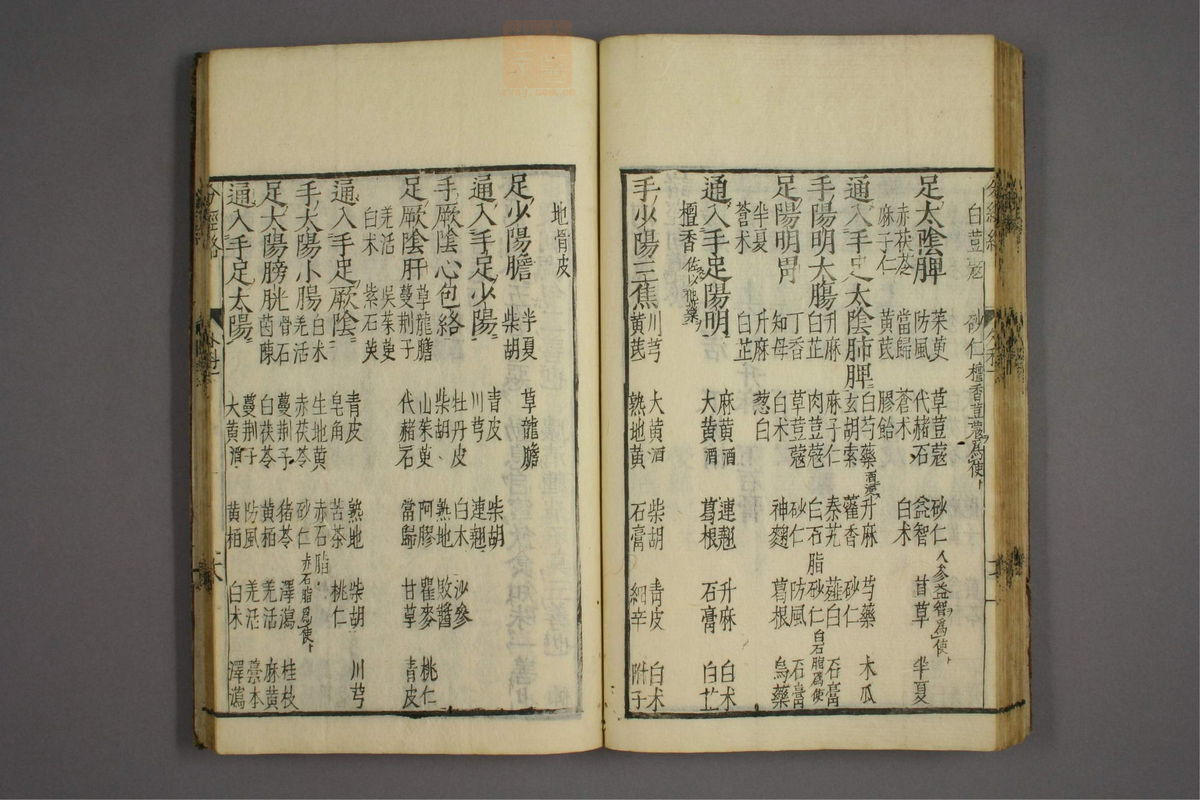 白荳蔻 砂仁檀香荳蔻爲使
足太陰脾 茱萸 草荳蔻 砂仁人參益智爲使
防風 代赭石 益智 甘草 半夏
赤茯苓 當歸 蒼术 白术
麻子仁 黃芪 膠飴
通入手足太陰肺脾 白芍藥酒浸 升麻 芍藥 木瓜
升麻 玄胡索 藿香 砂仁
手陽明大腸 白芷 麻子仁 秦艽 薤白 石膏
肉荳蔻 白石脂 砂仁白石脂爲使
足陽明胃 丁香 草荳蔻 砂仁 防風 石膏
知母 白术 神麴 葛根 烏藥
半夏 升麻 葱白
蒼术 白芷
通入手足陽明 麻黃酒 連翹 升麻 白术
大黃酒 葛根 石膏 白芷
檀香佐以他藥
手少陽三焦 川芎 大黃酒 柴胡 青皮 白术
黃芪 熟地黃 石膏 細辛 附子
地骨皮
足少陽膽 半夏 草龍膽
柴胡
通入手足少陽 青皮 柴胡
川芎 連翹
手厥陰心包絡 牡丹皮 白术 沙參
柴胡 熟地 敗醬
足厥陰肝 草龍膽 山茱萸 阿膠 瞿麥 桃仁
蔓荊子 代赭石 當歸 甘草 青皮
羌活 吳茱萸
白术 紫石英
通入手足厥陰 青皮 熟地 柴胡 川芎
皂角 苦茶 桃仁
手太陽小腸 白术 生地黃 赤石脂
羌活 赤茯苓 砂仁赤石脂爲使
足太陽膀胱 滑石 蔓荊子 猪苓 澤瀉 桂枝
茵陳 白茯苓 黃栢 羌活 麻黃
通入手足太陽 蔓荊子 防風 羌活 藁本
大黃酒 黃栢 白术 澤瀉
分經絡 卷一
六